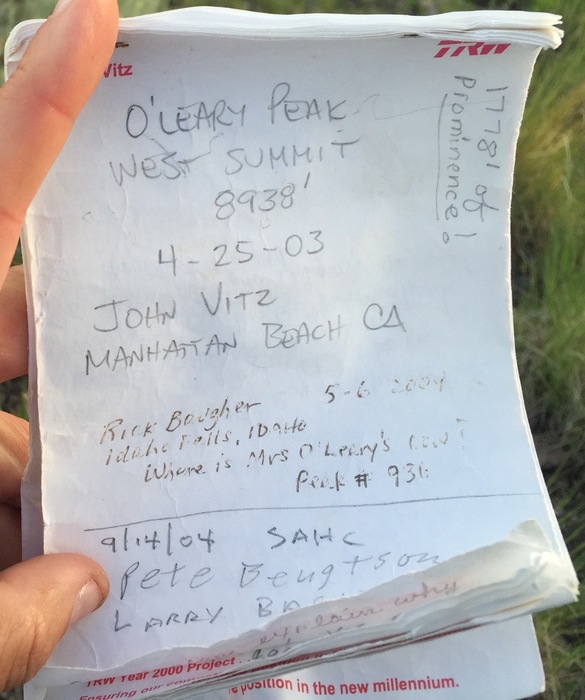 Vitz
TRW
O'LEARY PEAK
WEST SUMMIT
8938'
1778' of
Prominence!
4-25-03
JOHN VITZ
MANHATTAN BEACH CA
5-6 2004
Rick Baugher
Idaho Falls, Idaho
Where is Mrs O'Leary's cow?
Peak # 936
9/14/04 SAHC
Pete Bengtson
LARRY
explain why
TRW Year 2000 Project
Ensuring our
position in the new millennium.